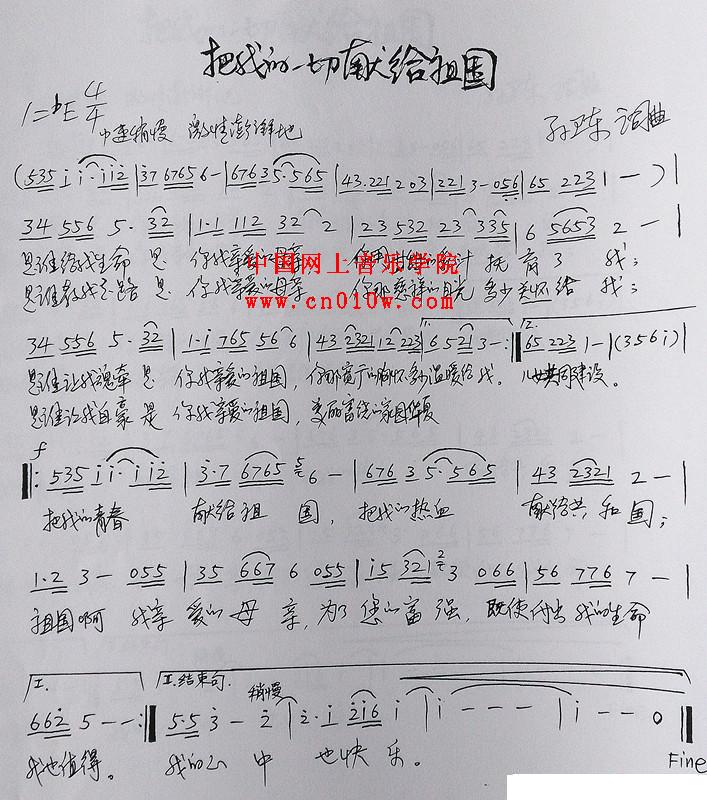 把我的一切献给祖国
1=♭E 4/4
中速稍慢 激情澎湃地
孙卫东 词曲
(535 i i·i i2 | 37 6765 6- | 676 3 5·565 | 43·221 2 03 | 221 3- 056 | 65 223 1 - )|
34 556 5· 32 | 1·1 112 32 2 | 23 532 23 335 | 6 5653 2 - |
是谁给我生命 是 你我亲爱的母亲 你用甘甜的乳汁 抚育了 我;
是谁教我走路 是 你我亲爱的母亲 你那慈祥的目光 多少关怀给 我;
中国网上音乐学院
www.cn010w.com
34 556 5· 32 | 1·i 765 56 6 | 43 2321 12 223 | 1. 6 521 3 - :‖ 2. 65 223 1 - | (3 5 6 i) |
是谁让我魂牵 是 你我亲爱的祖国, 你那宽广的胸怀多少温暖给我。 儿女共同建设。
是谁让我自豪 是 你我亲爱的祖国, 美丽富饶的家园华夏
f
‖: 535 i i·i i2 | 3·7 6765 5 6 - | 676 3 5·565 | 43 2321 2 - |
把我的青春 献给祖 国, 把我的热血 献给共和国;
1·2 3 - 055 | 35 667 6 055 | i5 321 2 3 066 | 56 776 7 - |
祖国啊 我亲爱的母 亲, 为了您的富强, 既使付出我的生命
I. II.结束句. 稍慢
662 5 - - :‖ 5·5 3 - 2 | 2·i 2i6 i | i - - - | i - - 0 ‖
我也值得。 我的心中也快乐。
Fine